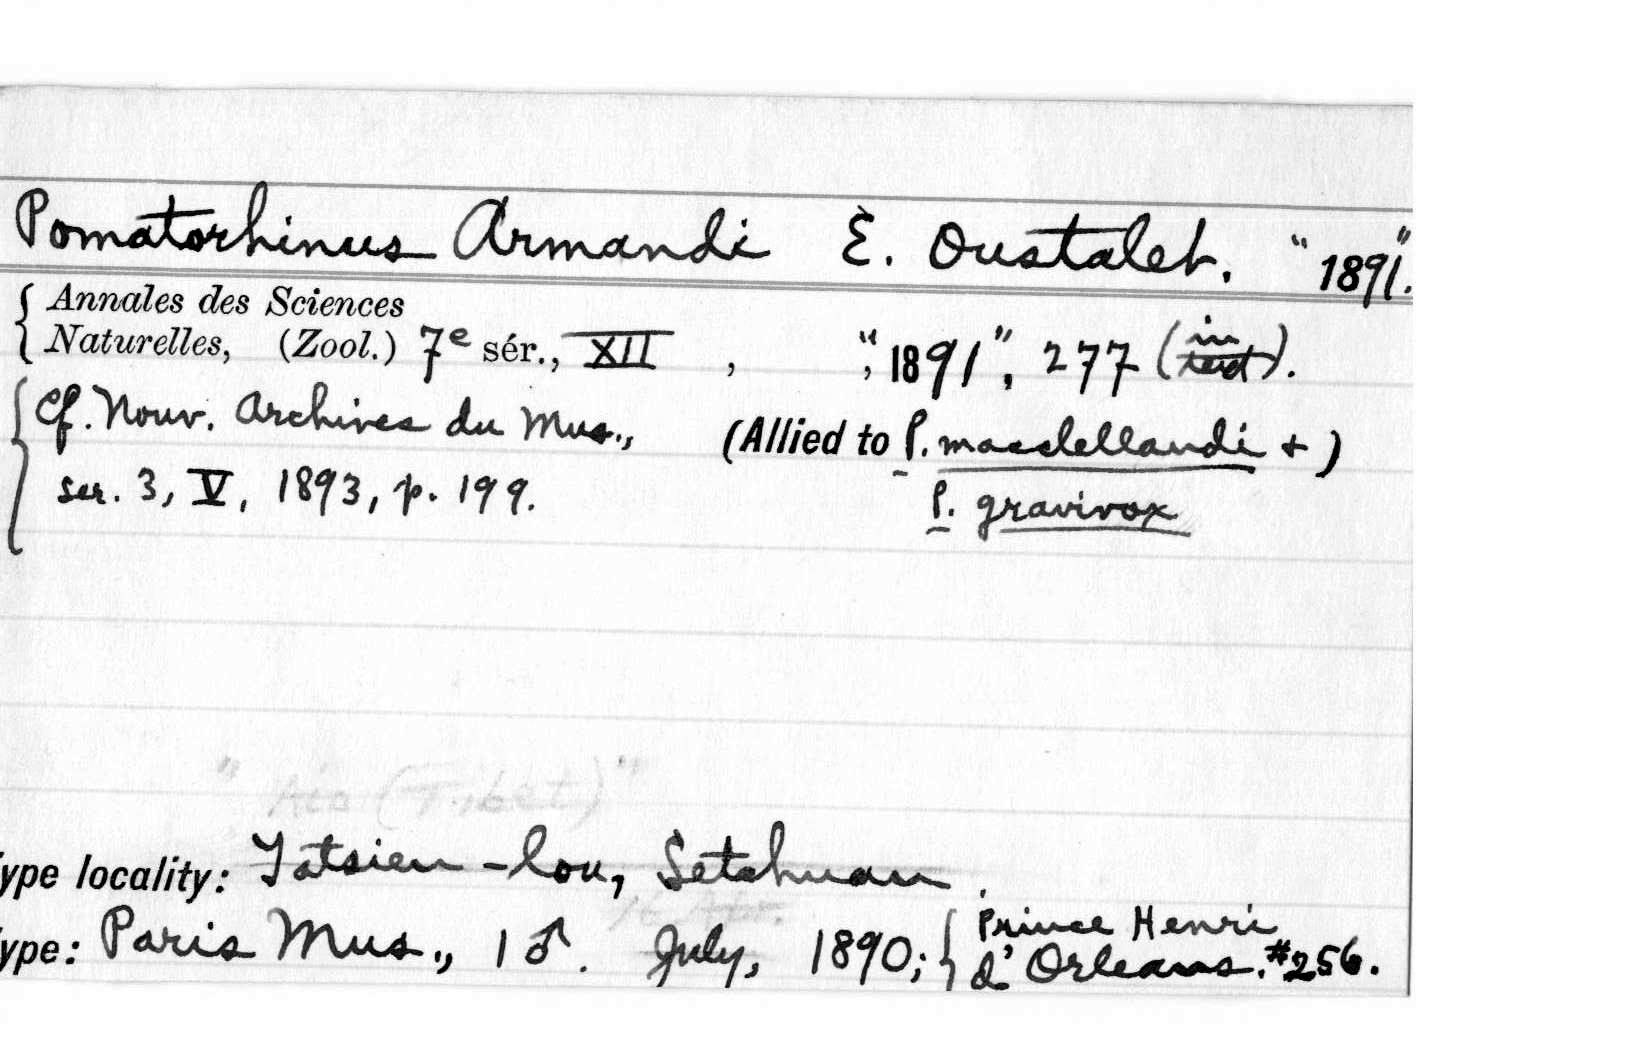 Pomatorhinus Armandi E. Oustalet. "1891".
Annales des Sciences
Naturelles, (Zool.) 7e sér., XII , "1891", 277 (in text).
Cf. Nouv. Archives du Mus., (Allied to P. macclellandi + )
ser. 3, V, 1893, p. 199. P. gravivox
"Aio (Tibet)"
ype locality: Tatsien-lou, Setchuan.
ype: Paris Mus., 1♂. July, 1890; Prince Henri
d'Orleans. #256.